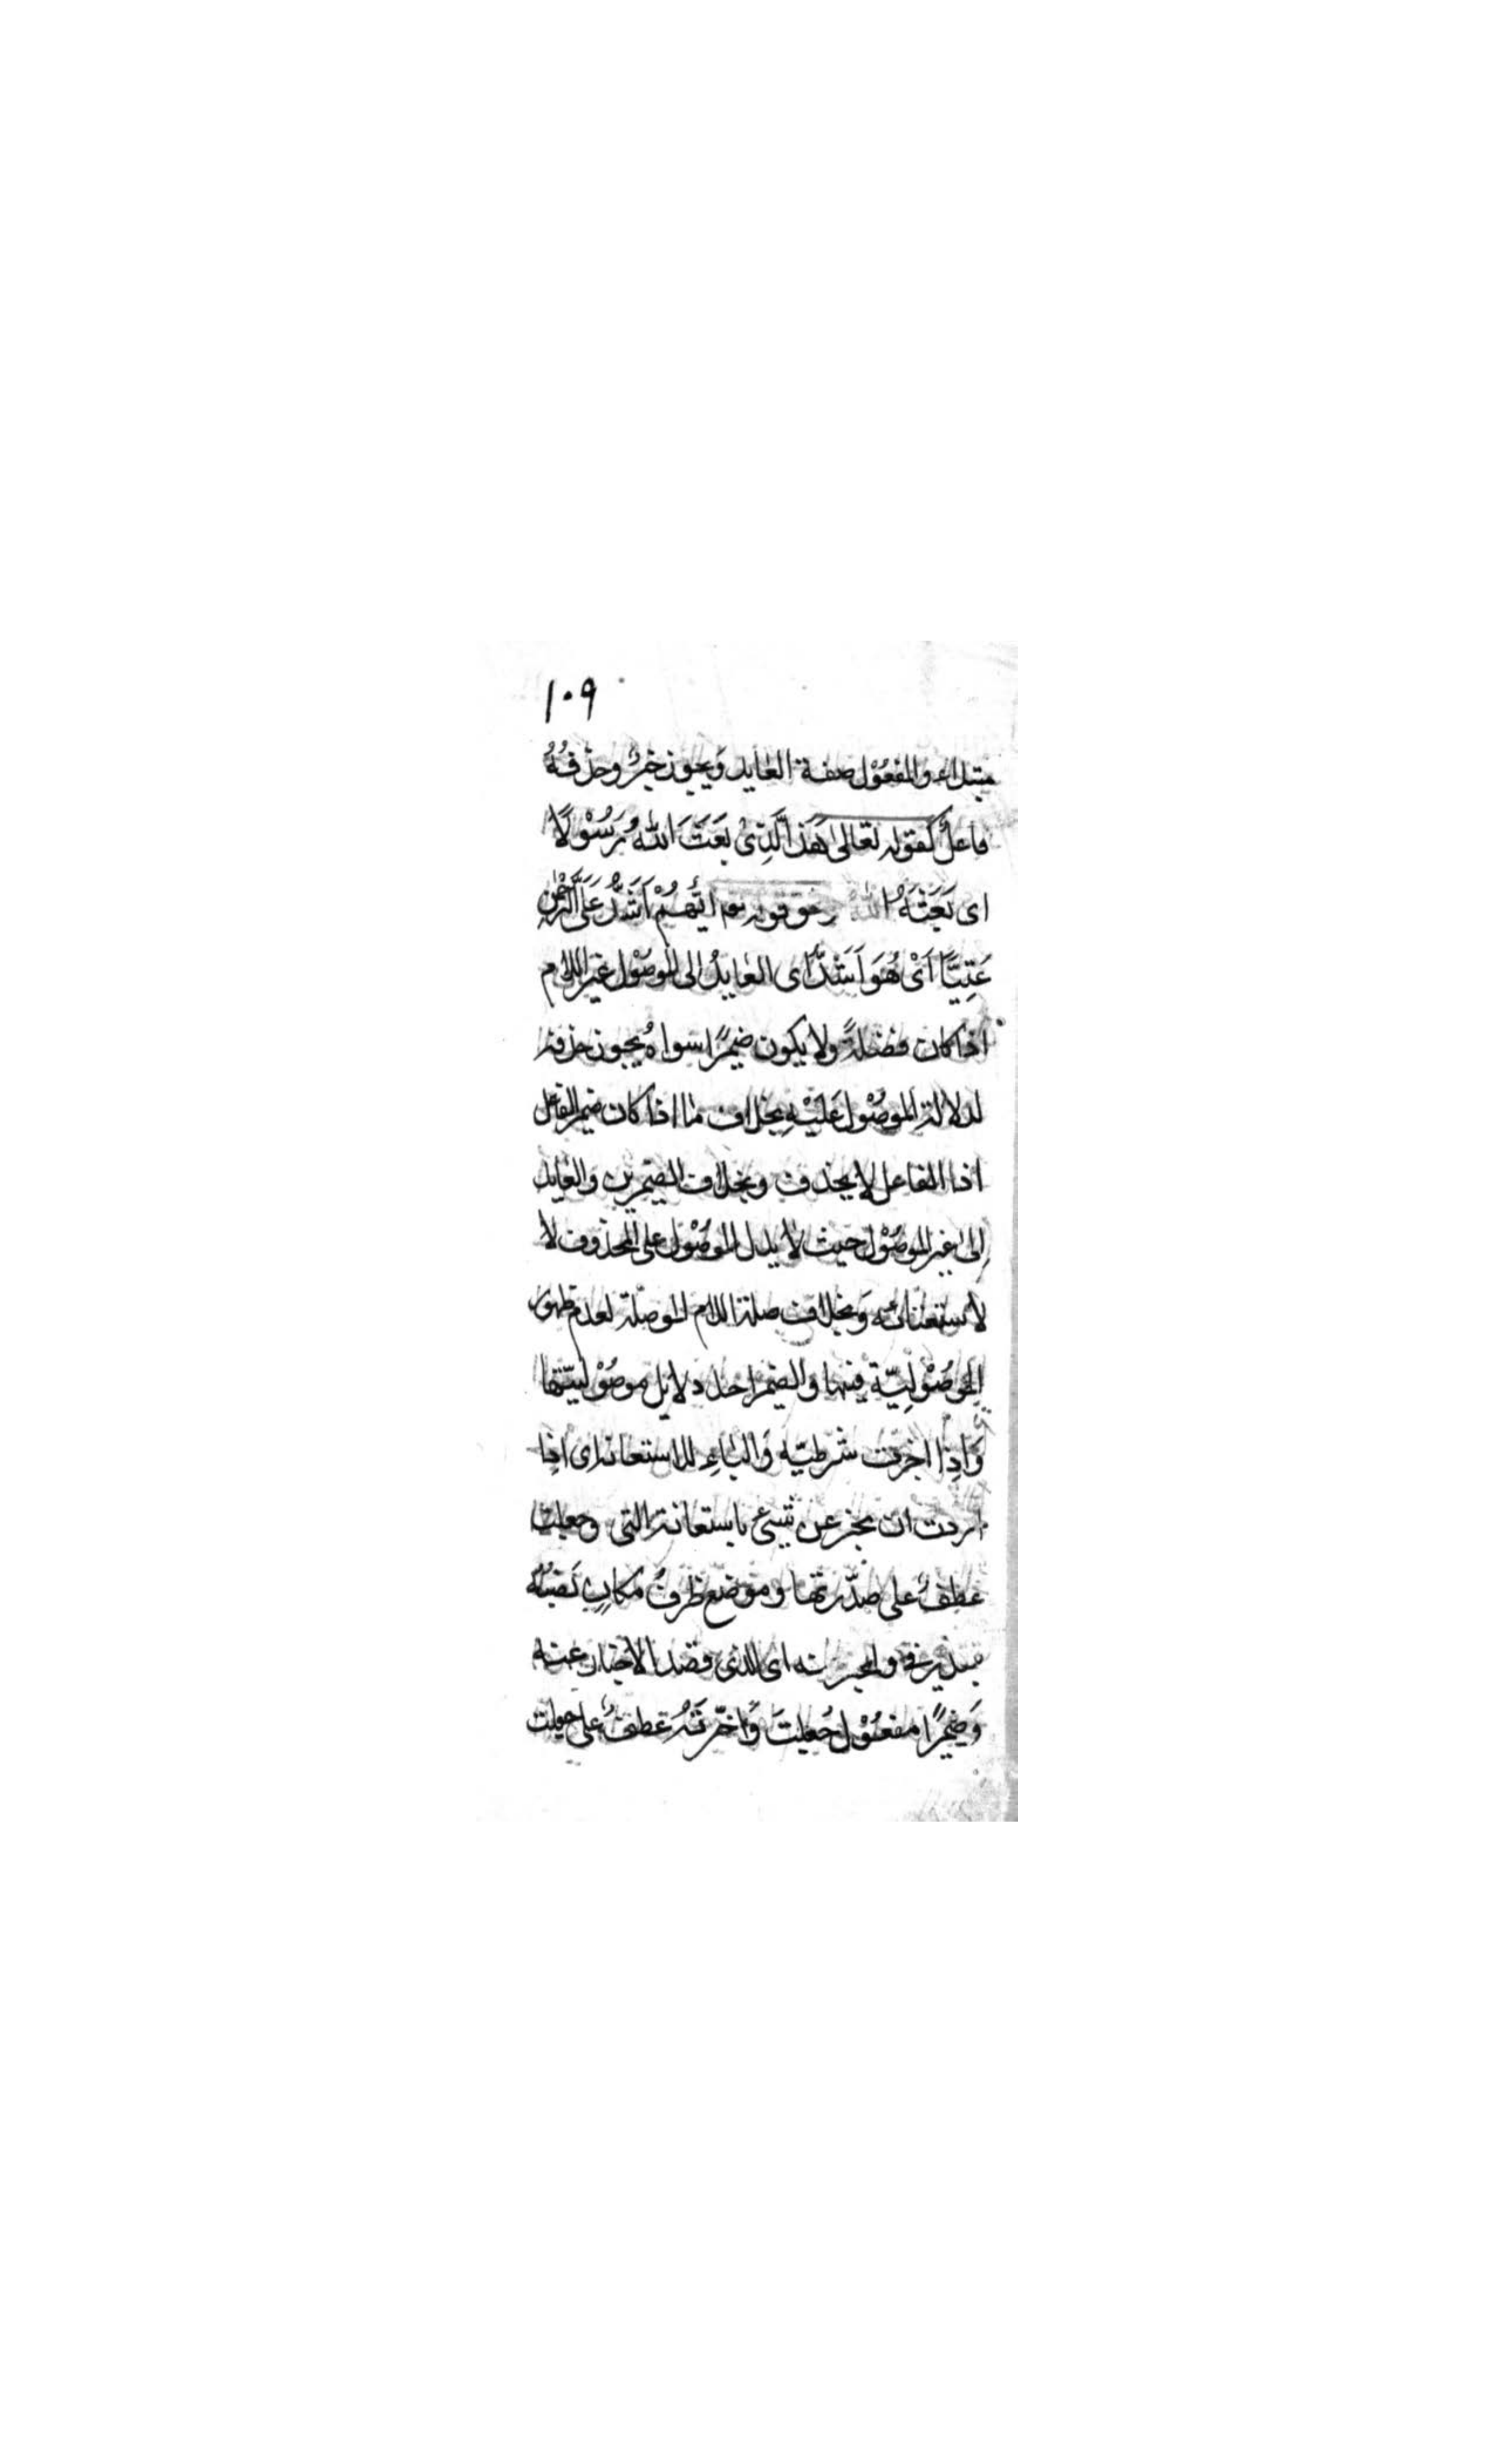 ١٠٩
مبتداء والمفعول صفة العايد ويجوز خبره وحذفُهُ
فاعل كقوله تعالى هَذَا الَّذِىْ بَعَثَ اللهُ رَسُوْلًا
اى بَعَثَهُ اللهُ ونحو قوله تعم ايُّهُمْ اَشَدُّ عَلَى الرَّحْمٰنِ
عَتِيًّا اَىْ هُوَ اَشَدُّ اى العايدُ الى الموصُوْل غير اللام
اذا كان فضلةً ولا يكون ضميرًا سواهُ يجوز حذفه
لدلالة الموصُوْل عَلَيْهِ بخلاف ما اذا كان ضمير الفاعل
اذا الفاعل لا يحذف وبخلاف الضميرين والعايد
إلى غير الموصُوْل حيث لا يدل الموصُوْل على المحذوف لا
لاستغنائه وَبخلاف صلة اللام الموصلة لعدم ظهور
الموصُوْلِيّة فيها والضمير احد دلايل موصُوْليّتها
وَاِذا اخبرت شرطيّه وَالباءِ للاستعانه اى اذا
اردت ان تخبر عن شيئ باستعانة التى وجعلت
عطفٌ على صدّرتها وموضع ظرفُ مكانٍ نَصبُهُ
بتقدير فى والمخبر عنه اى الذى قصد الاخبار عنه
وَضميرًا مفعُوْل جُعلتَ وَاخّرتَهُ عطفٌ على جعلت